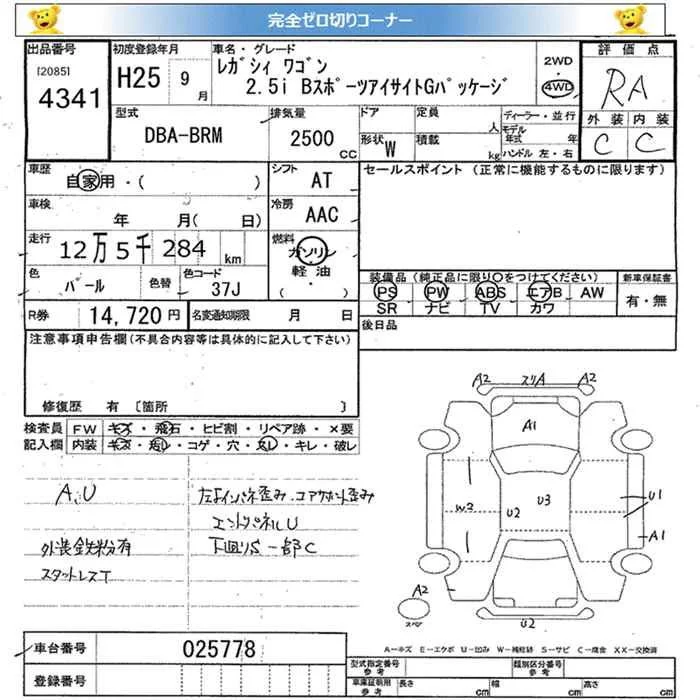 完全ゼロ切りコーナー
出品番号 初度登録年月 車名・グレード 評価点
[2085] 4341 H25 9月 レガシィ ワゴン 2WD
2.5i BスポーツアイサイトGパッケージ 4WD RA
型式 排気量 ドア 定員 人 ディーラー・並行 外装 内装
DBA-BRM 2500CC モデル年式 年
形状 W 積載 kg ハンドル 左・右 C C
車歴 自家用・( ) シフト AT セールスポイント (正常に機能するものに限ります)
車検 年 月( 日) 冷房 AAC
走行 12万5千284km 燃料 ガソリン
軽油・( )
色 パール 色替 色コード 37J 装備品(純正品に限り○をつけてください) 新車保証書
PS PW ABS エアB AW 有・無
SR ナビ TV カワ
R券 14,720円 名変通知期限 月 日 後日品
注意事項申告欄(不具合内容等は具体的に記入して下さい)
修復歴 有 〔箇所 〕
検査員 FW キズ・飛石・ヒビ割・リペア跡・×要
記入欄 内装 キズ・汚レ・コゲ・穴・スレ・キレ・破レ
A,U
外装鉄粉有
スタットレスT
エンドパネルU
下廻りS 一部C
A2 スリA A2
A1
W2 U2 U3 U1
A1
A2
スペア
U2
A-キズ E-エクボ U-凹み W-補修跡 S-サビ C-腐食 XX-交換済
車台番号 025778
登録番号
型式指定番号 参考 類別区分番号 参考
車庫証明用 参考 長さ cm 幅 cm 高さ cm